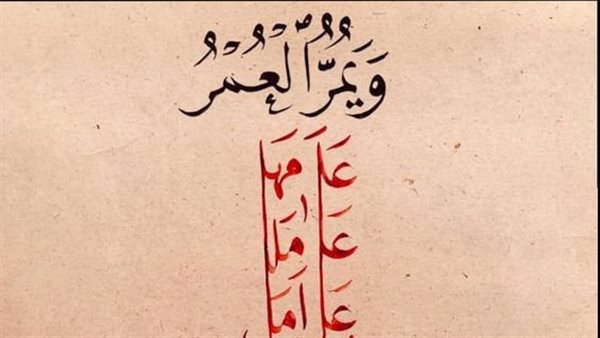 وَيَمُرُّ الْعُمْرُ
عَلَى مَهَل
عَلَى مَلَل
عَلَى أَمَل